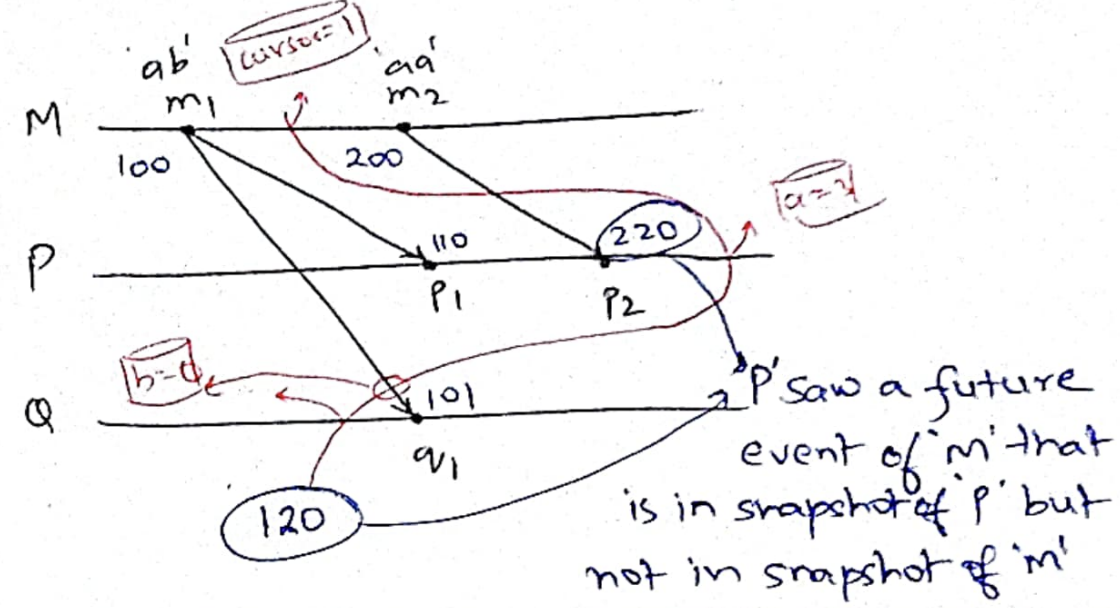 'ab'
cursor=1
'aa'
m1
m2
M
100
200
a=4
220
110
P
P1
P2
b=0
101
Q
q1
120
'P' saw a future
event of 'm' that
is in snapshot of 'P' but
not in snapshot of 'm'